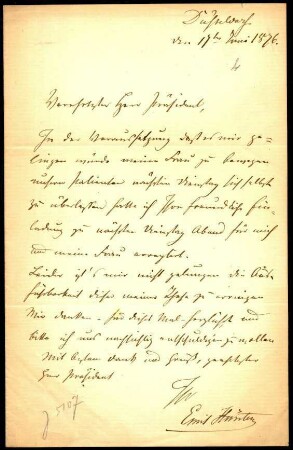 Düsseldorf
den 17ten Juni 1876.
4
Verehrtester Herr Präsident,
In der Voraussetzung daß es mir ge-
lingen würde meine Frau zu bewegen
unsern Patienten nächsten Dienstag sich selbst
zu überlassen hatte ich Ihre freundliche Ein-
ladung zu nächsten Dienstag Abend für mich
und meine Frau
Leider ist's mir nicht gelungen die Aus-
führbarkeit dieser meiner zu
Wir danken für dieses Mal herzlichst und
bitte ich uns nachsichtig entschuldigen zu wollen
Mit bestem Dank und Gruß, geehrtester
Herr Präsident
Ihr
Emil Hünten